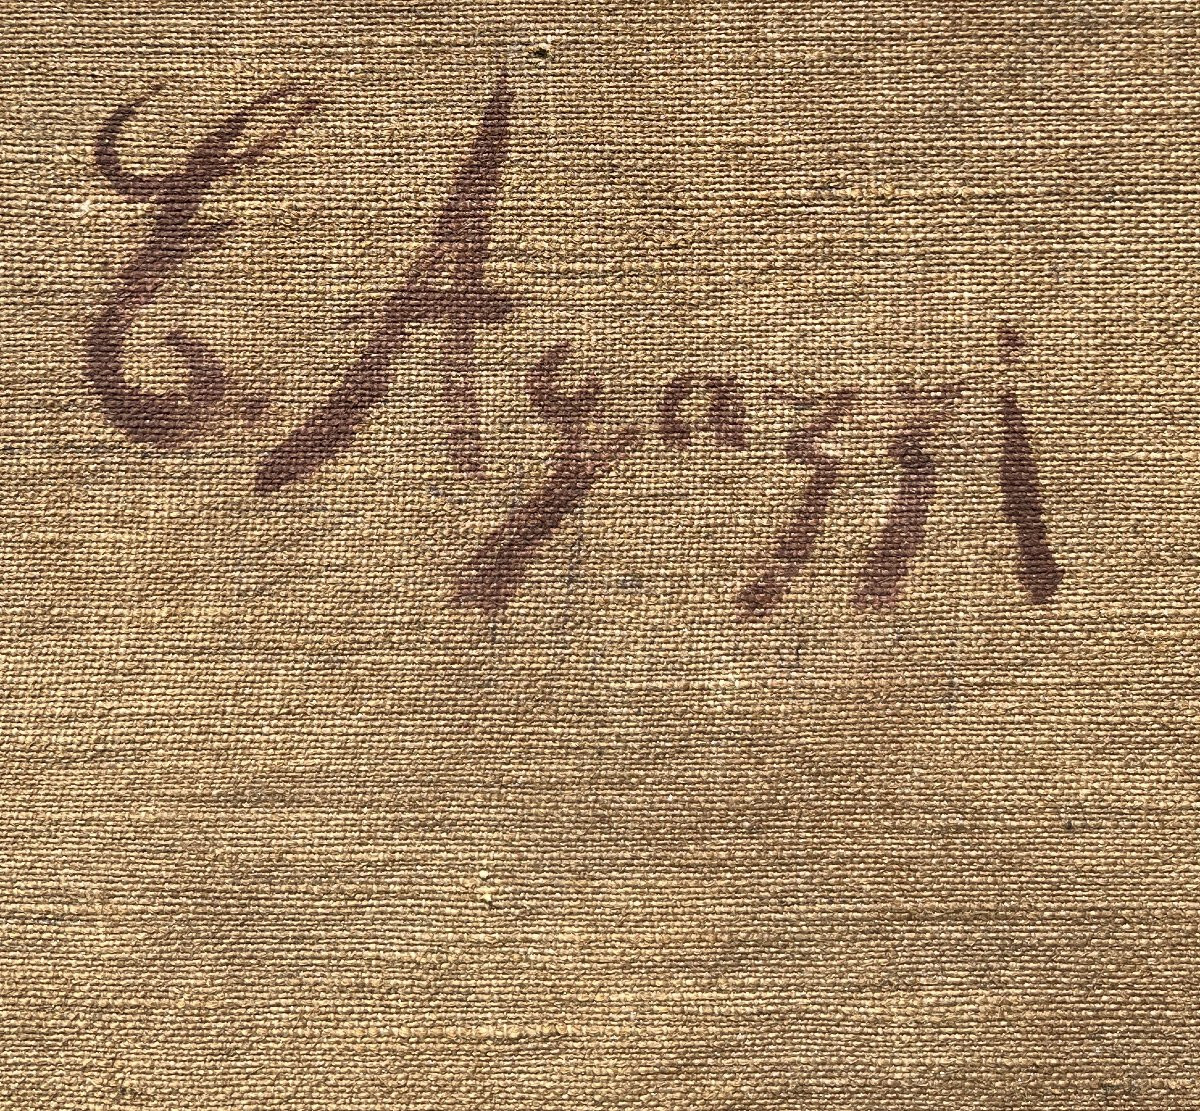 E. Ayazzi